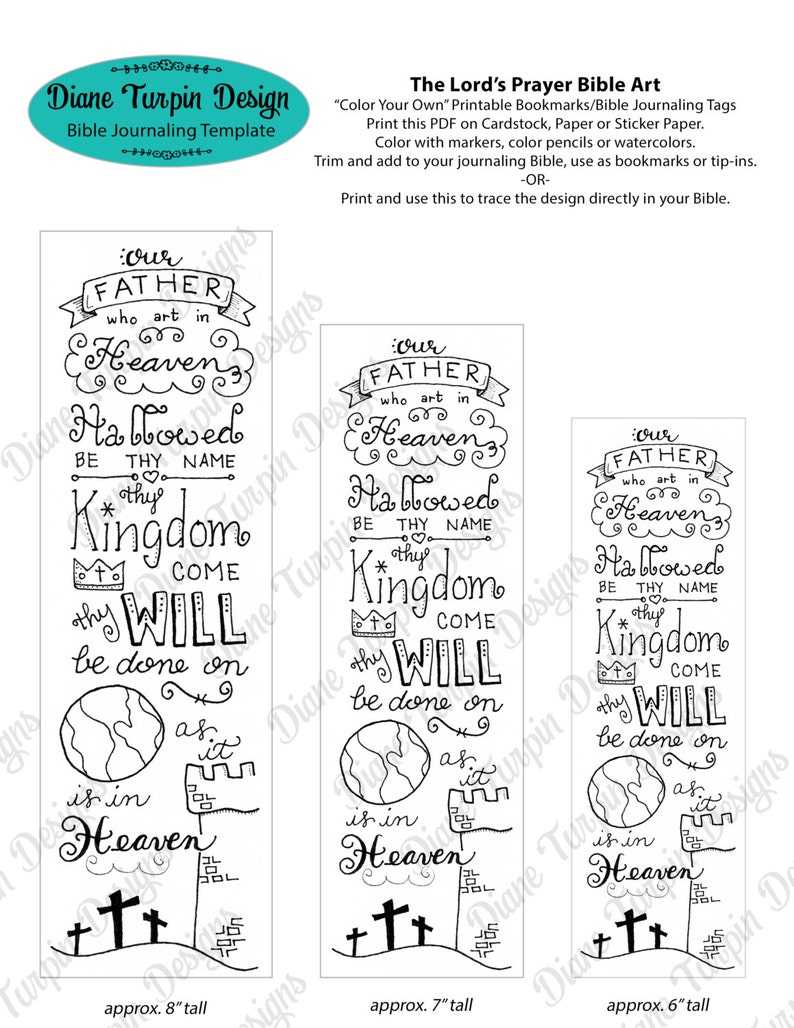 Diane Turpin Design
Bible Journaling Template
The Lord's Prayer Bible Art
“Color Your Own” Printable Bookmarks/Bible Journaling Tags
Print this PDF on Cardstock, Paper or Sticker Paper.
Color with markers, color pencils or watercolors.
Trim and add to your journaling Bible, use as bookmarks or tip-ins.
-OR-
Print and use this to trace the design directly in your Bible.
our
FATHER
who art in
Heaven
Hallowed
BE THY NAME
thy
Kingdom
COME
thy WILL
be done on
as
it
is in
Heaven
approx. 8” tall
our
FATHER
who art in
Heaven
Hallowed
BE THY NAME
thy
Kingdom
COME
thy WILL
be done on
as
it
is in
Heaven
approx. 7” tall
our
FATHER
who art in
Heaven
Hallowed
BE THY NAME
thy
Kingdom
COME
thy WILL
be done on
as
it
is in
Heaven
approx. 6” tall
Diane Turpin Designs
Diane Turpin Designs
Diane Turpin Designs
Diane Turpin Designs
Diane Turpin Designs